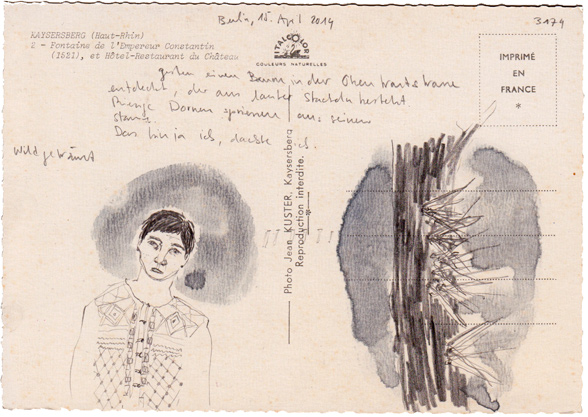 Berlin, 15. April 2014
3174
KAYSERSBERG (Haut-Rhin)
2 - Fontaine de l'Empereur Constantin
(1521), et Hôtel-Restaurant du Château
ITALCOLOR
COULEURS NATURELLES
IMPRIMÉ
EN
FRANCE
*
gestern einen Baum in der
entdeckt, der aus lauter Stacheln besteht
Dornen aus seinem
Stamm.
Das bin ja ich, dachte ich.
Photo Jean KUSTER, Kaysersberg
Reproduction interdite.